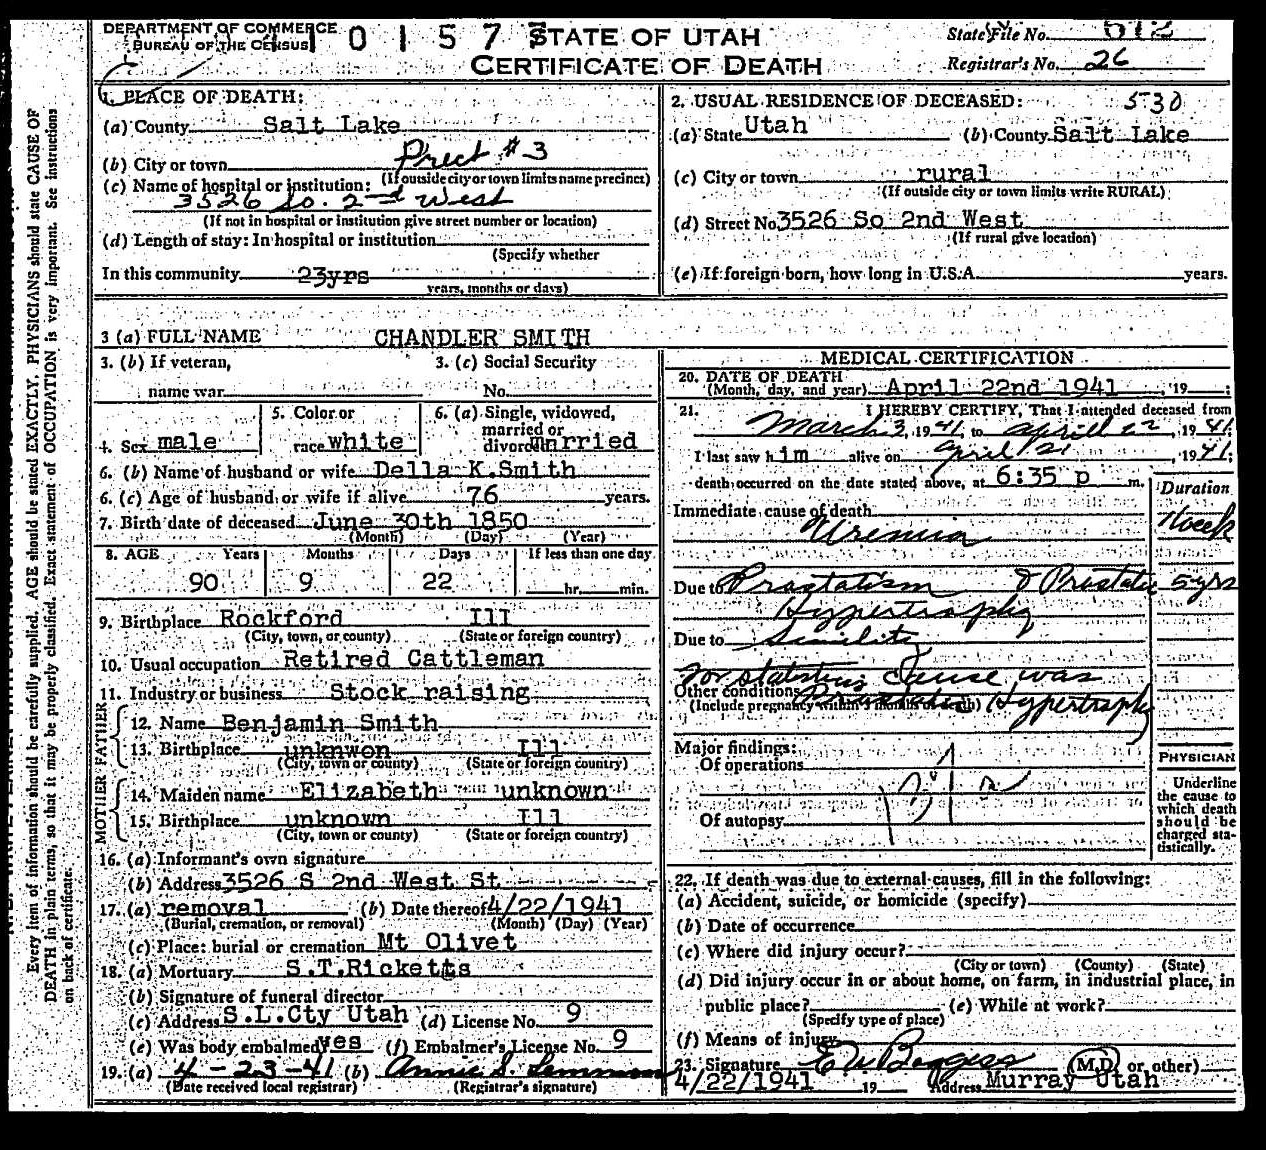 DEPARTMENT OF COMMERCE
BUREAU OF THE CENSUS
1 0 1 5 7 7
STATE OF UTAH
CERTIFICATE OF DEATH
State File No. 612
Registrar's No. 26
1. PLACE OF DEATH:
(a) County Salt Lake
(b) City or town Prect #3
(If outside city or town limits name precinct)
(c) Name of hospital or institution:
3526 So. 2nd West
(If not in hospital or institution give street number or location)
(d) Length of stay: In hospital or institution
(Specify whether
In this community 23yrs
years, months or days)
2. USUAL RESIDENCE OF DECEASED: 530
(a) State Utah (b) County Salt Lake
(c) City or town rural
(If outside city or town limits write RURAL)
(d) Street No. 3526 So 2nd West
(If rural give location)
(e) If foreign born, how long in U.S.A. years.
3 (a) FULL NAME CHANDLER SMITH
3. (b) If veteran, 3. (c) Social Security
name war No.
4. Sex male
5. Color or race white
6. (a) Single, widowed, married or divorced married
6. (b) Name of husband or wife Della K.Smith
6. (c) Age of husband or wife if alive 76 years.
7. Birth date of deceased June 30th 1850
(Month) (Day) (Year)
8. AGE Years Months Days If less than one day
90 9 22 hr. min.
9. Birthplace Rockford Ill
(City, town, or county) (State or foreign country)
10. Usual occupation Retired Cattleman
11. Industry or business Stock raising
FATHER
12. Name Benjamin Smith
13. Birthplace unknwon Ill
(City, town or county) (State or foreign country)
MOTHER
14. Maiden name Elizabeth unknown
15. Birthplace unknown Ill
(City, town or county) (State or foreign country)
16. (a) Informant's own signature
(b) Address 3526 S 2nd West St
17. (a) removal (b) Date thereof 4/22/1941
(Burial, cremation, or removal) (Month) (Day) (Year)
(c) Place: burial or cremation Mt Olivet
18. (a) Mortuary S.T.Ricketts
(b) Signature of funeral director
(c) Address S.L.Cty Utah (d) License No. 9
(e) Was body embalmed yes (f) Embalmer's License No. 9
19. (a) 4-23-41 (b) Annie S. Lemmon
(Date received local registrar) (Registrar's signature)
MEDICAL CERTIFICATION
20. DATE OF DEATH
(Month, day, and year) April 22nd 1941, 19 ;
21. I HEREBY CERTIFY, That I attended deceased from
March 3, 1941, to April 22, 1941,
I last saw him alive on April 21, 1941;
death occurred on the date stated above, at 6:35 p m.
Duration
Immediate cause of death
Uremia 1 week
Due to Prostatism & Prostatic 5 yrs
Hypertrophy
Due to Senility
For statistics cause was
Other conditions Prostatic Hypertrophy
(Include pregnancy within 3 months of death)
Major findings:
Of operations
Of autopsy
PHYSICIAN
Underline
the cause to
which death
should be
charged sta-
tistically.
22. If death was due to external causes, fill in the following:
(a) Accident, suicide, or homicide (specify)
(b) Date of occurrence
(c) Where did injury occur?
(City or town) (County) (State)
(d) Did injury occur in or about home, on farm, in industrial place, in
public place? (e) While at work?
(Specify type of place)
(f) Means of injury
23. Signature E W Boggess (M.D. or other)
4/22/1941 19 Address Murray Utah
Every item of information should be carefully supplied. AGE should be stated EXACTLY. PHYSICIANS should state CAUSE OF
DEATH in plain terms, so that it may be properly classified. Exact statement of OCCUPATION is very important. See instructions
on back of certificate.